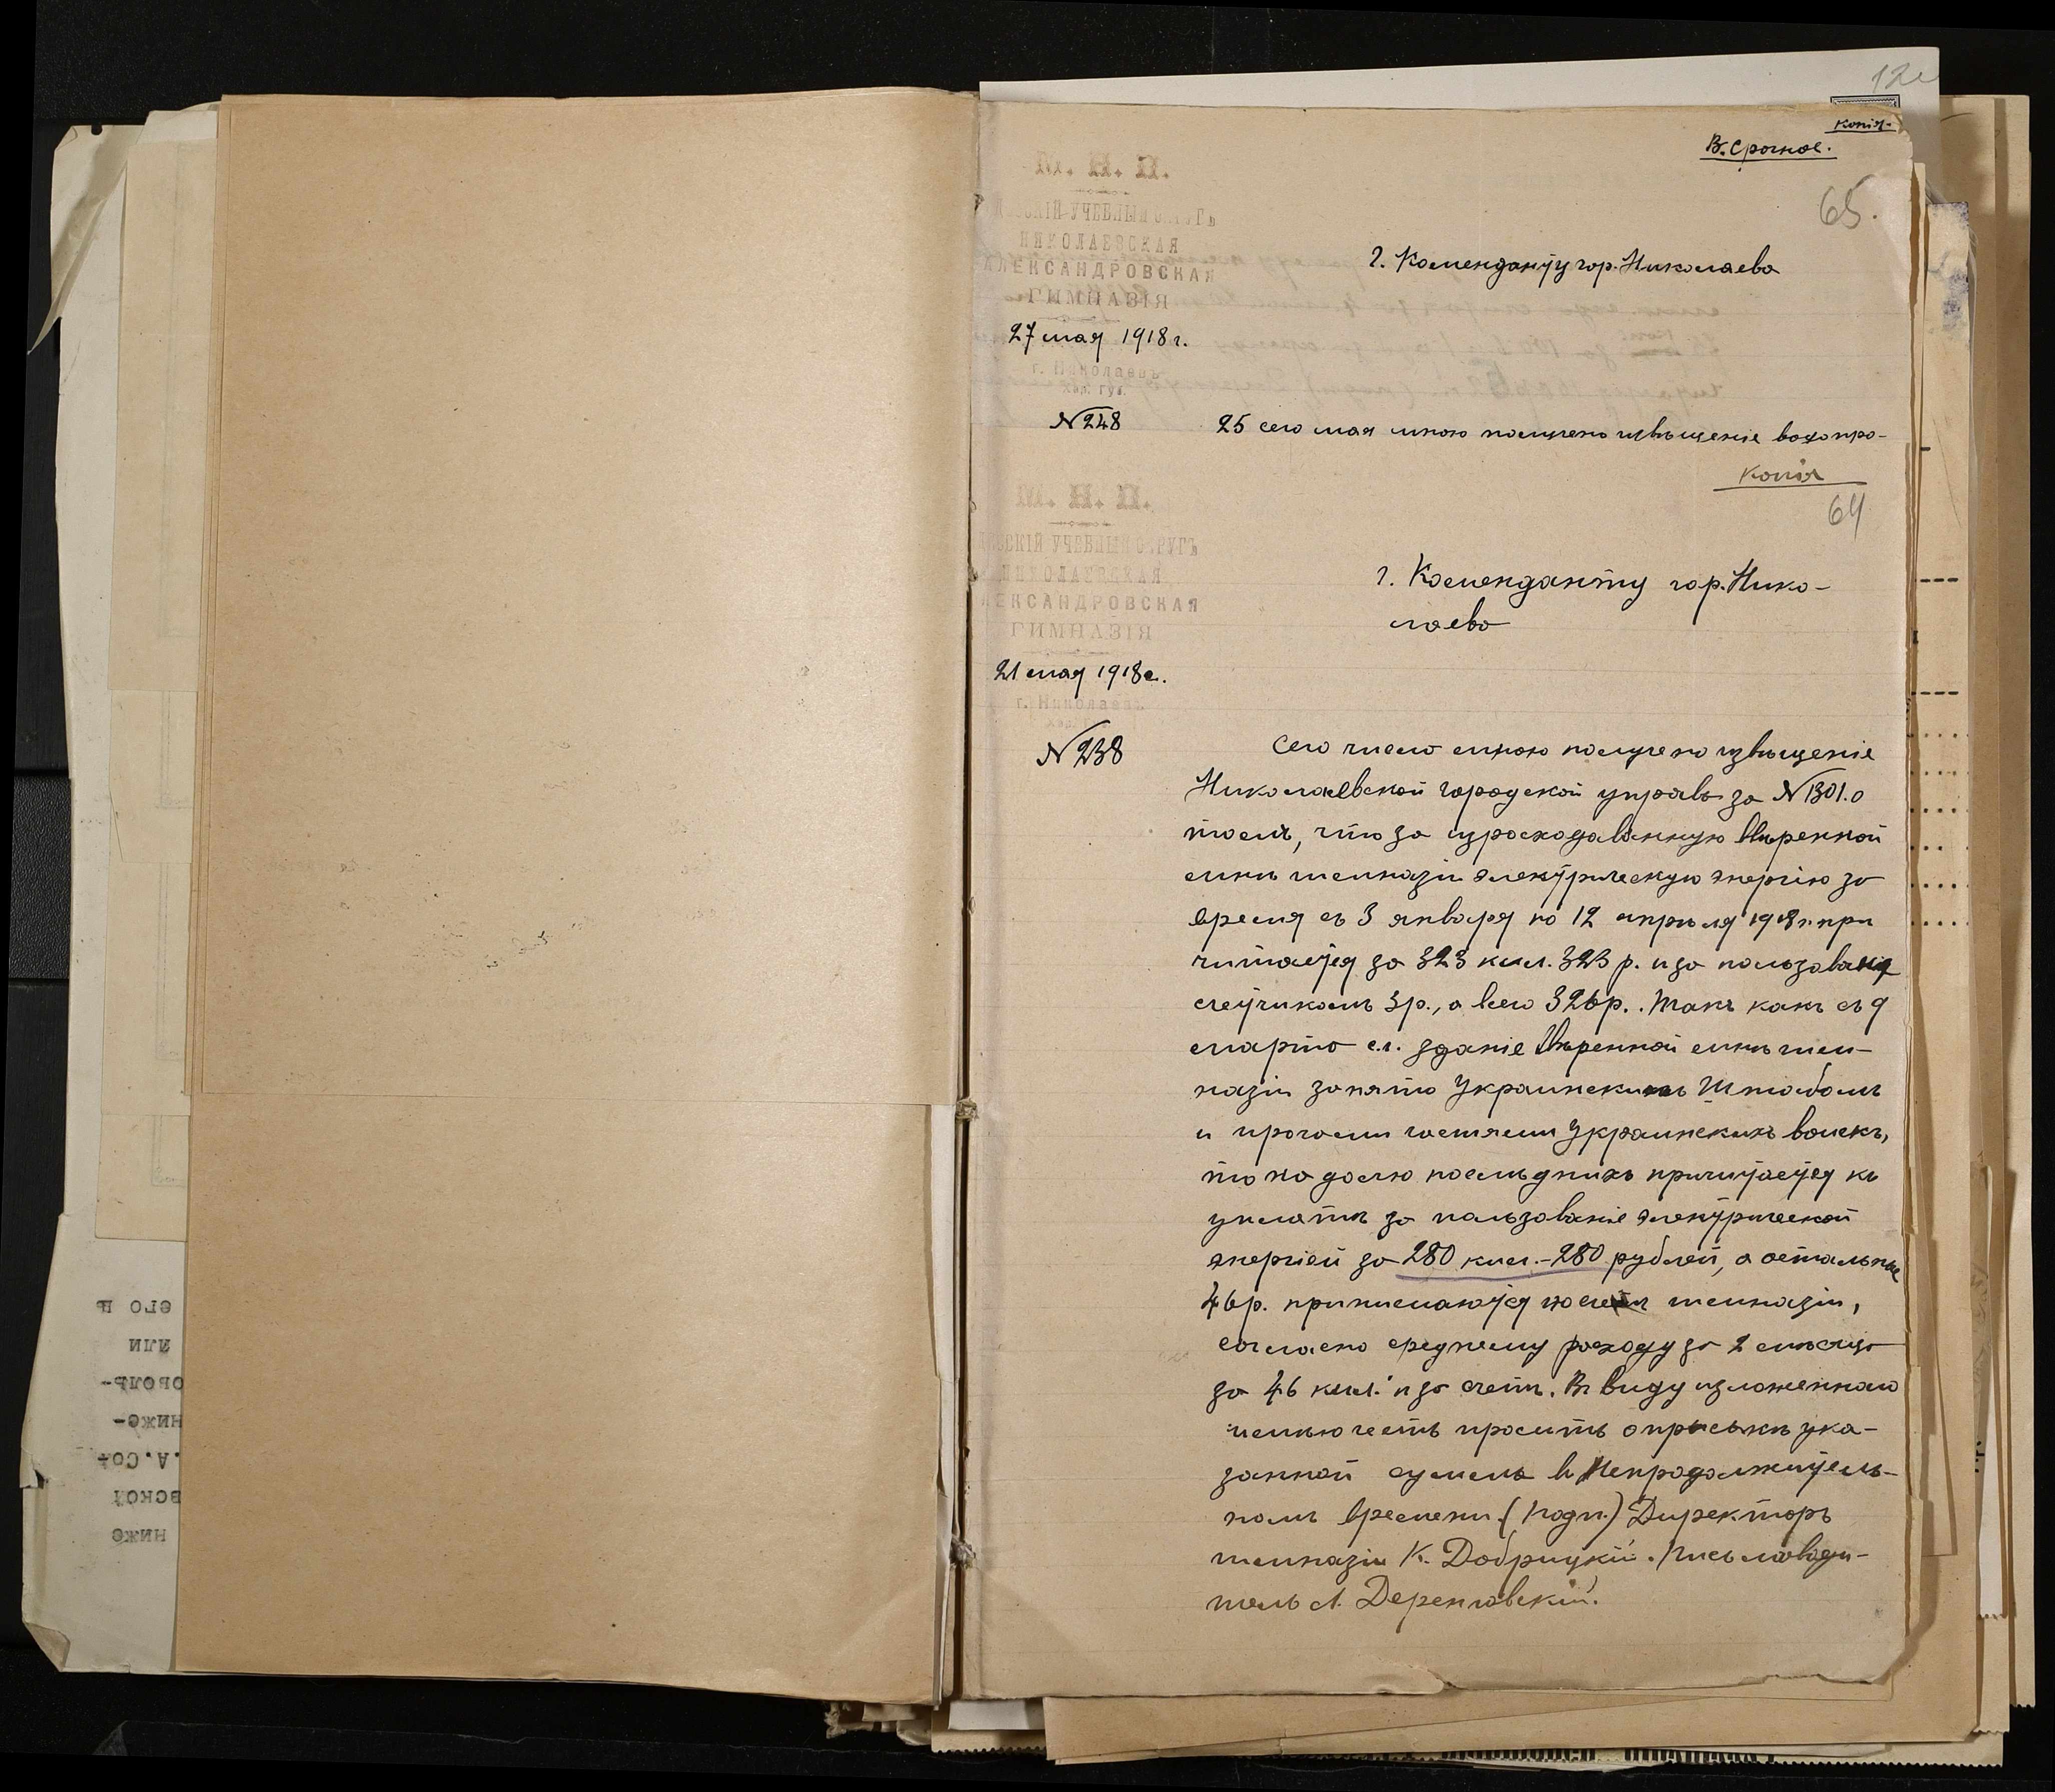 Копія.
В. Срочное.
65.
М. Н. П.
УЧЕБНЫЙ ОКРУГЪ
НИКОЛАЕВСКАЯ
АЛЕКСАНДРОВСКАЯ
ГИМНАЗІЯ
27 мая 1918 г.
г. Николаевъ
Хер. губ.
№ 248
г. Коменданту гор. Николаева
25 сего мая мною получено извѣщеніе водопро-
Копія
64
М. Н. П.
СКІЙ УЧЕБНЫЙ ОКРУГЪ
НИКОЛАЕВСКАЯ
ЛЕКСАНДРОВСКАЯ
ГИМНАЗІЯ
21 мая 1918 г.
г. Николаевъ
№ 238
г. Коменданту гор. Нико-
лаева
Сего число мною получено извѣщеніе
Николаевской городской управѣ за № 1301. о
томъ, что за израсходаванную ввѣренной
мнѣ гимназіи электрическую энергію за
время съ 3 января по 12 апрѣля 1918 г. при
читается за 323 кил. 323 р. и за пользованія
счетчикомъ 3 р., а всего 326 р.. Такъ какъ съ 9
марта с.г. зданіе ввѣренной мнѣ гим-
назіи занято Украинскимъ Штабомъ
и прочими частями Украинскихъ войскъ,
то на долю послѣднихъ причитается къ
уплатѣ за пользованіе электрической
энергіей за 280 кил. - 280 рублей, а остальные
46 р. принимаются гимназіи,
согласно среднему расходу за 2 мѣсяца
за 46 кил. и за счетч. Въ виду изложеннаго
имѣю честь просить о присылкѣ ука-
занной суммы въ непродолжитель-
номъ времени. (подп.) Директоръ
гимназіи К. Добрицкій. Письмоводи-
тель А. Деренговскій.
его в
или
ниже-
.А.Со-
вской
ниже